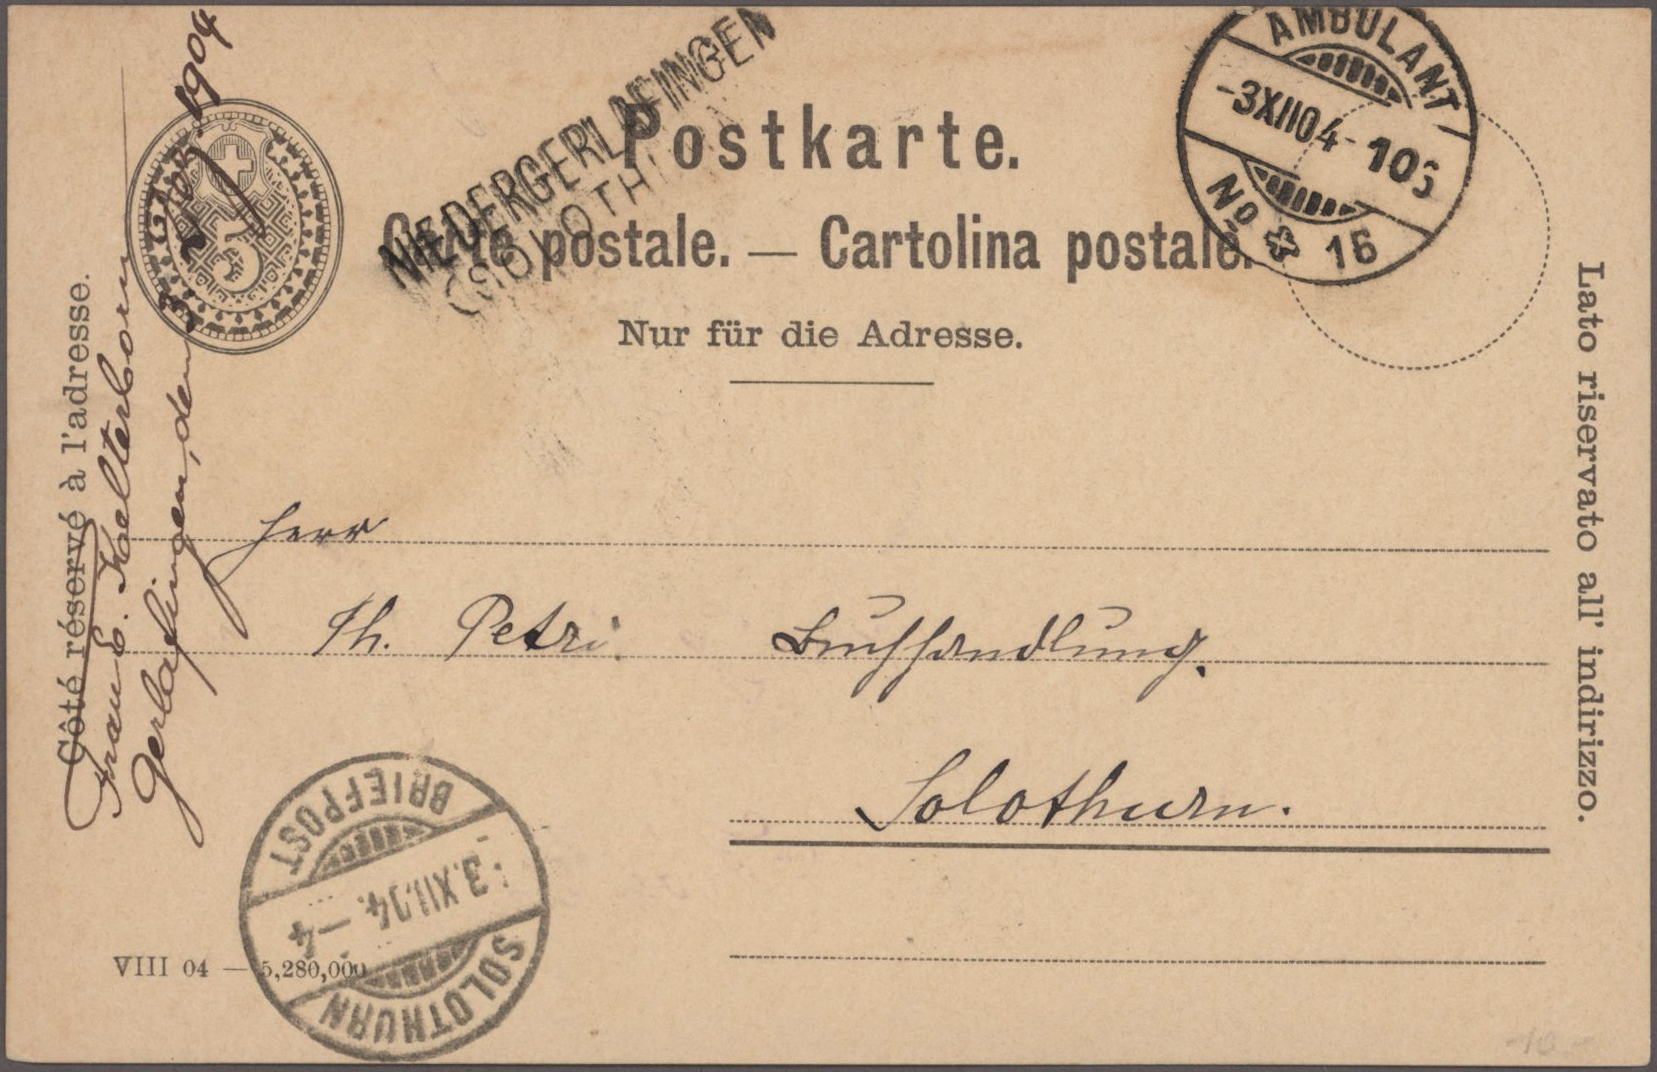 NIEDERGERLAFINGEN
(SOLOTHURN)
AMBULANT
-3XII04- 106
No 16
Postkarte.
Carte postale. — Cartolina postale.
Nur für die Adresse.
Côté réservé à l'adresse.
Lato riservato all' indirizzo.
5
Frau E. Kalterborn
Gerlafingen, den 3. Dez. 1904
Herr
Th. Petri. Buchhandlung.
Solothurn.
BRIEFPOST
-3.XII.04.-4
SOLOTHURN
VIII 04 — 5,280,000
-10-